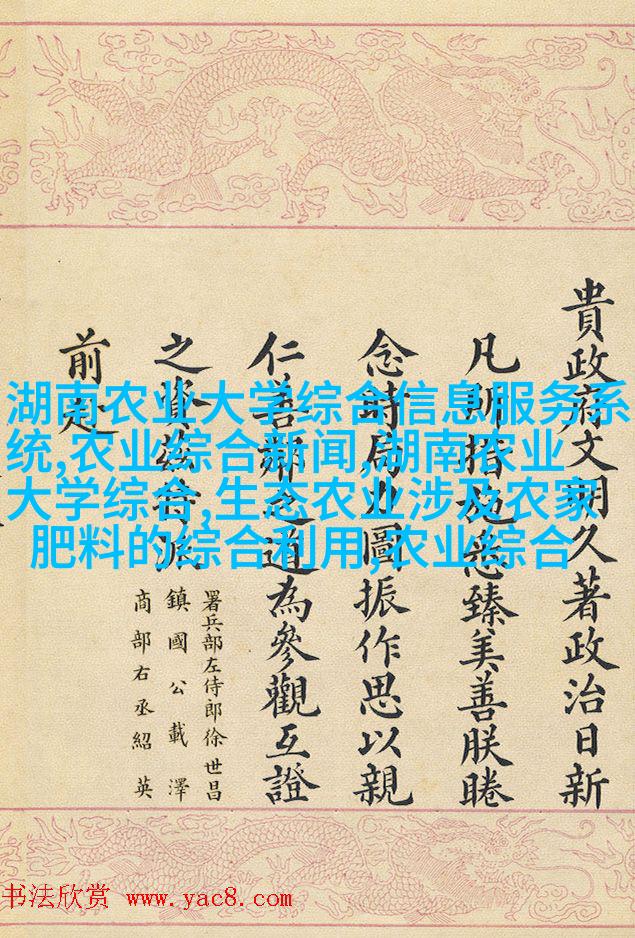 貴政府文明久著政治日新
凡所措施悉臻美善朕睠
念時局力圖振作思以親
仁善鄰之道為參觀互證
之資茲特派
署兵部左侍郎徐世昌
鎮國公載澤
商部右丞紹英
前赴
湖南农业大学综合信息服务系
统,农业综合新闻,湖南农业
大学综合,生态农业涉及农家
肥料的综合利用,农业综合
书法欣赏 www.yac8.com